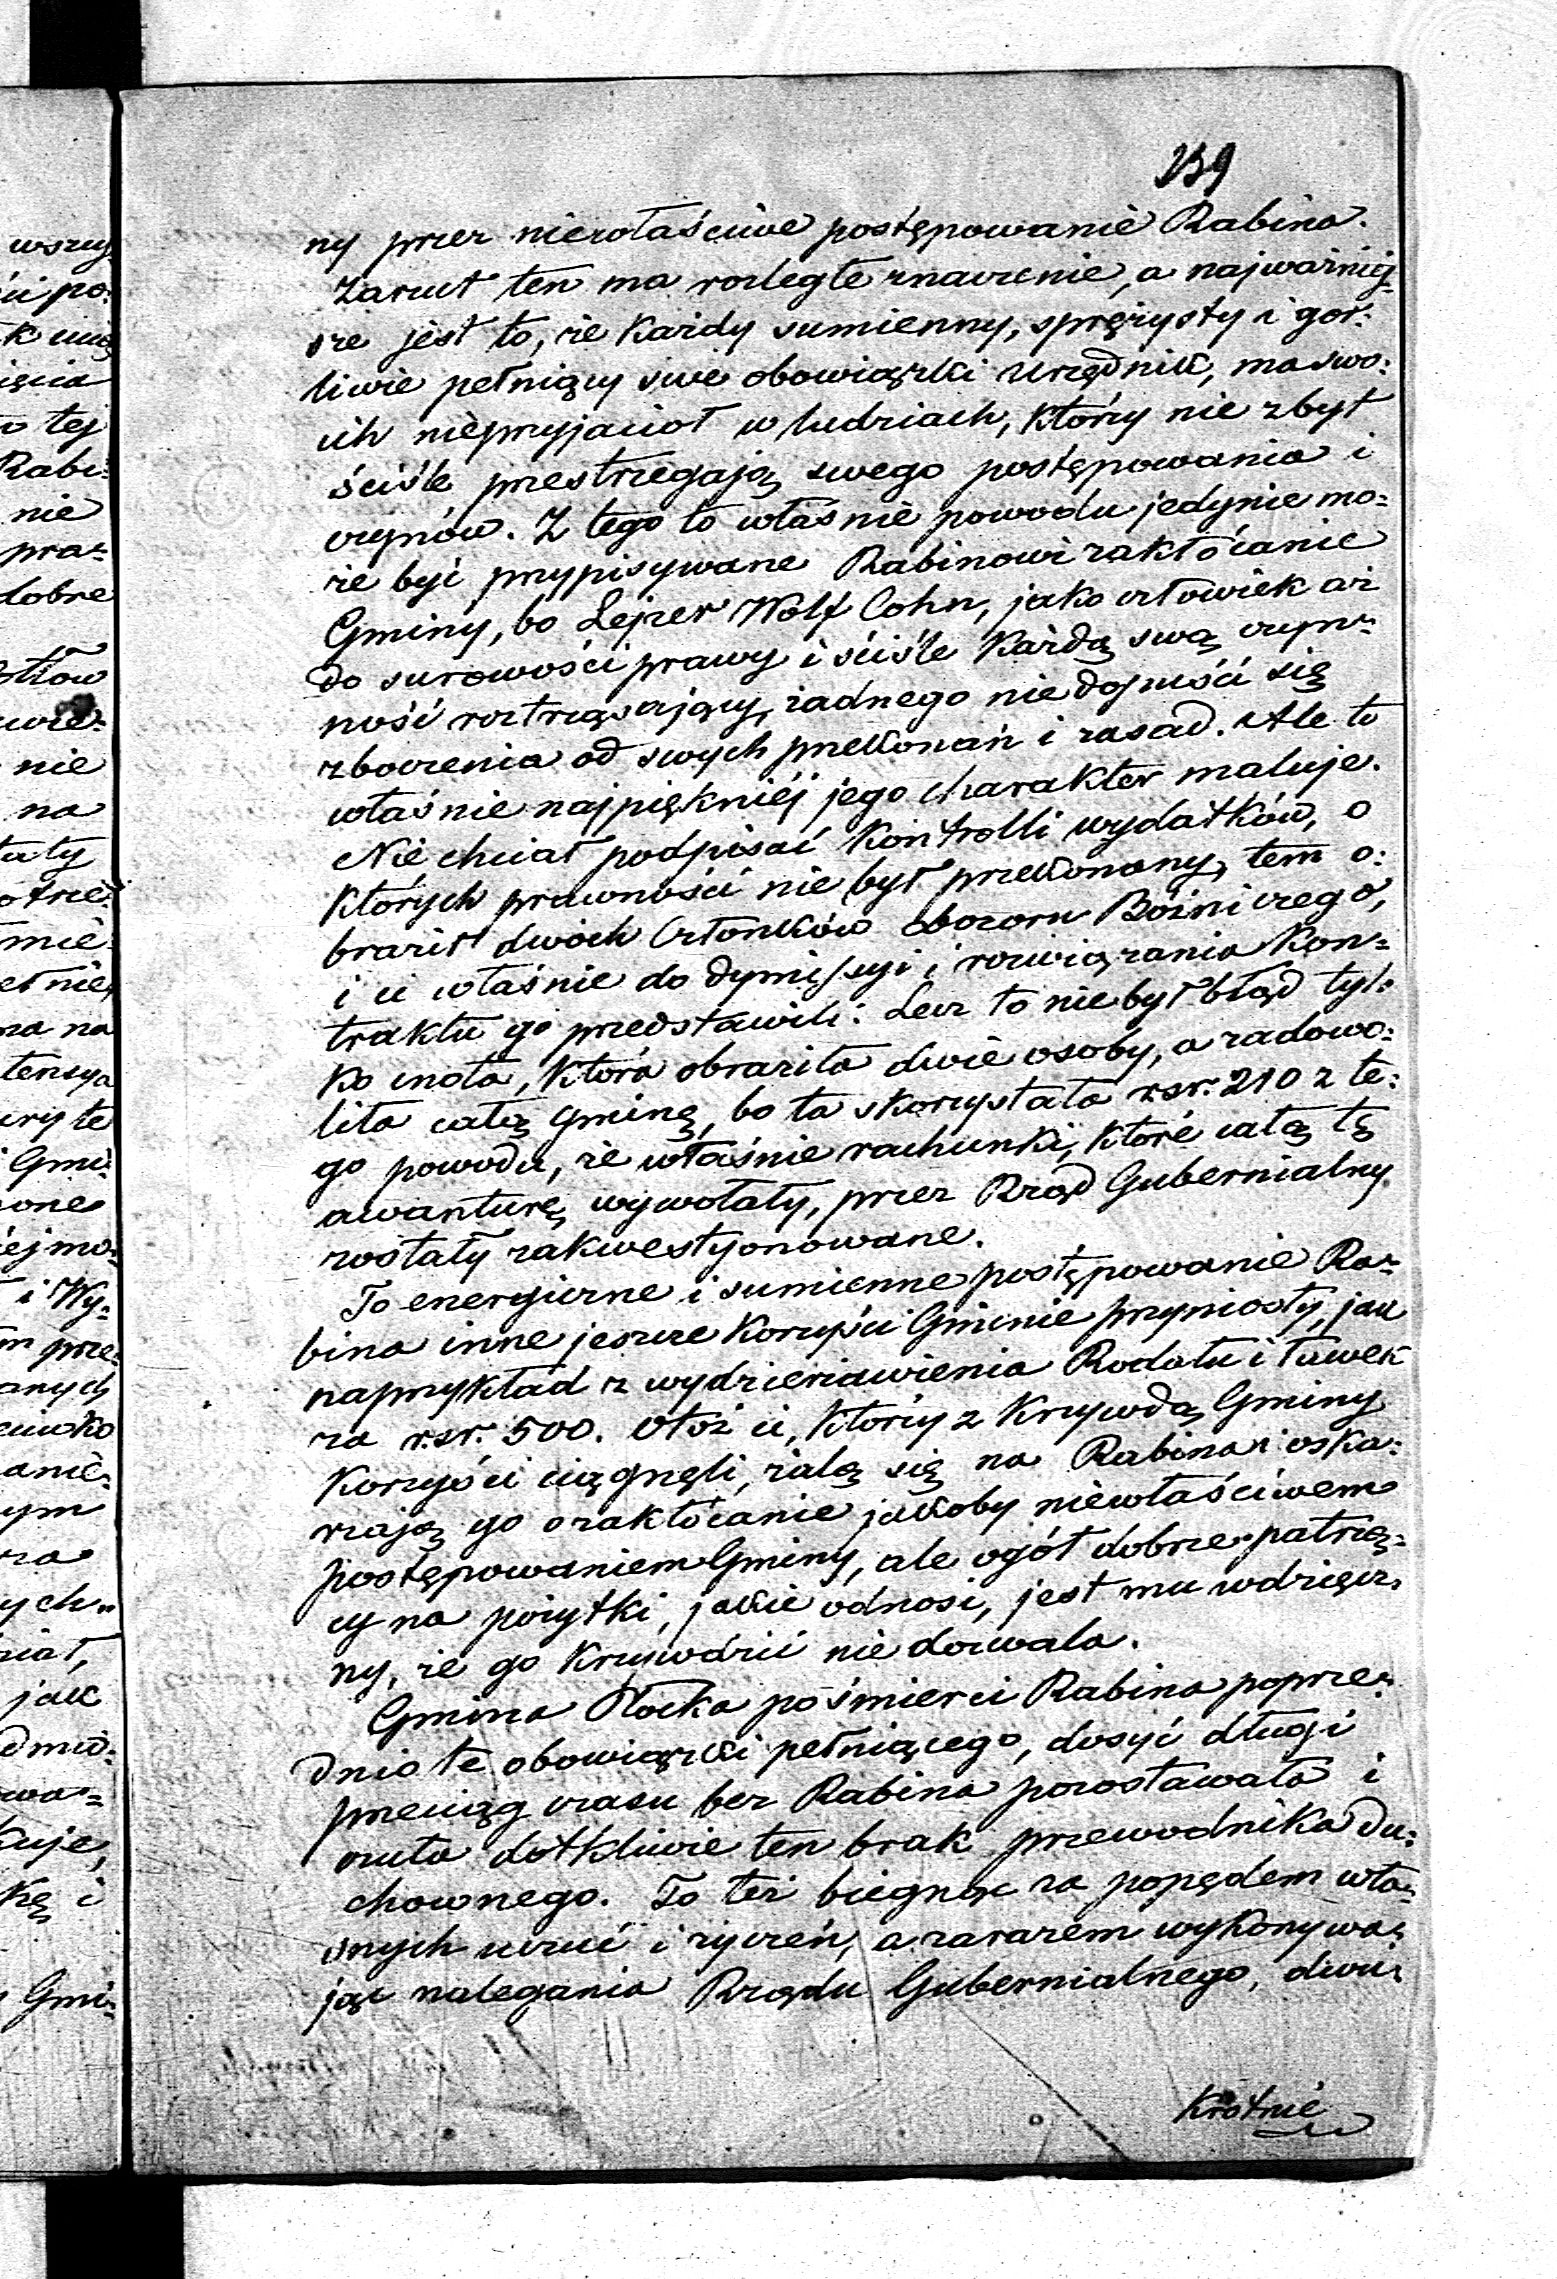 239
ny przez niewłaściwe postępowanie Rabina.
Zarzut ten ma rozległe znaczenie, a najważniej=
sze jest to, że każdy sumienny, sprężysty i gor=
liwie pełniący swe obowiązki urzędnik, ma swo=
ich nieprzyjaciół w ludziach, którzy nie zbyt
ściśle przestrzegają swego postępowania i
czynów. Z tego to właśnie powodu jedynie mo=
że być przypisywane Rabinowi zakłócanie
Gminy, bo Lejzer Wolf Cohn, jako człowiek aż
do surowości prawy i ściśle każdą swą czyn=
ność roztrząsający, żadnego niedopuści się
zboczenia od swych przekonań i zasad. Ale to
właśnie najpiękniéj jego charakter maluje.
Nie chciał podpisać kontrolli wydatków, o
których prawności nie był przekonany, tem o=
braził dwóch Członków dozoru Bóżniczego,
i ci właśnie do dymissyi i rozwiązania kon=
traktu go przedstawili. Lecz to nie był błąd tyl=
ko cnota, która obraziła dwie osoby, a zadowo=
liła całą gminę, bo ta skorzystała rsr. 210 z te=
go powodu, że właśnie rachunki, które całą tę
awanturę wywołały, przez Rząd Gubernialny
zostały zakwestyonowane.
To energiczne i sumienne postępowanie Ra=
bina inne jeszcze korzyści Gminie przyniosły, jak
naprzykład z wydzierżawienia Rodału i ławek
za r.sr. 500. Otóż ci, którzy z krzywdą Gminy
korzyści ciągnęli, żalą się na Rabina i oska=
rżają go o zakłócanie jakoby niewłaściwem
postępowaniem Gminy, ale ogół dobrze patrzą=
cy na pożytki, jakie odnosi, jest mu wdzięcz=
ny, że go krzywdzić nie dozwala.
Gmina Płocka po śmierci Rabina poprze=
dnio te obowiązki pełniącego, dosyć długi
przeciąg czasu bez Rabina pozostawała i
czuła dotkliwie ten brak przewodnika du=
chownego. To też biegnąc za popędem wła=
snych uczuć i życzeń, a zarazem wykonywa=
jąc nalegania Rządu Gubernialnego, dwu=
krotnie
wszy
po=
tej
Rabi=
nie
pra=
dobre
nie
na
tensya
Gmi=
i Wy=
prze=
jak
Gmi=